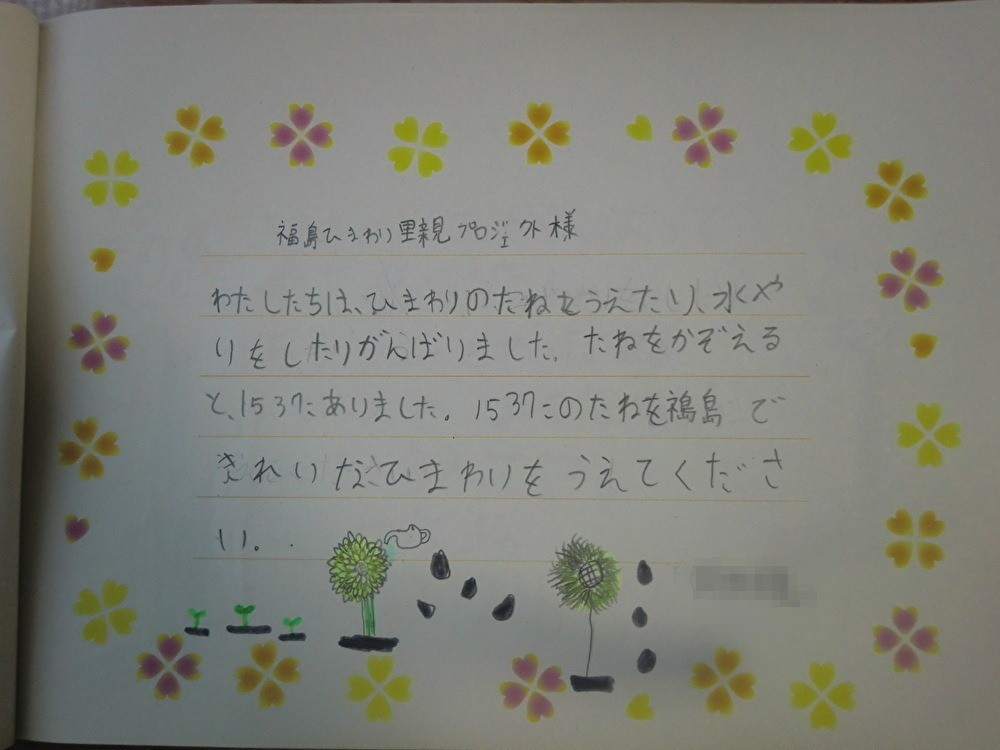 福島ひまわり里親プロジェクト様
わたしたちは、ひまわりのたねをうえたり、水や
りをしたりがんばりました。たねをかぞえる
と、1537こありました。1537このたねを福島で
きれいなひまわりをうえてくださ
い。